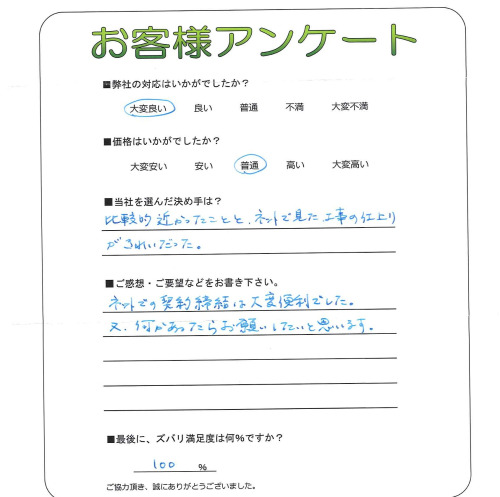 お客様アンケート
■弊社の対応はいかがでしたか？
大変良い 良い 普通 不満 大変不満
■価格はいかがでしたか？
大変安い 安い 普通 高い 大変高い
■当社を選んだ決め手は？
比較的近かったことと、ネットで見た工事の仕上り
がきれいだった。
■ご感想・ご要望などをお書き下さい。
ネットでの契約締結は大変便利でした。
又、何かあったらお願いしたいと思います。
■最後に、ズバリ満足度は何%ですか？
100 %
ご協力頂き、誠にありがとうございました。